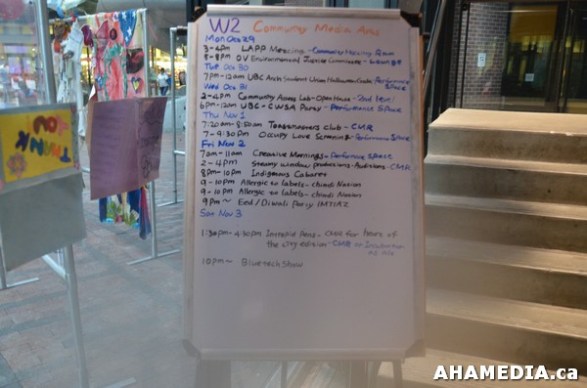 W2 Community Media Arts
Mon Oct 29
3-4pm LAPP Meeting - Community Meeting Room
6-8pm OV Environmental Justice Committee - Lounge
Tue Oct 30
7pm-12am UBC Arch Student Union Halloween Costume Performance Space
Wed Oct 31
2-4pm Community Access Lab - Open House - 2nd level
6pm-12am UBC-GWSA Party - Performance Space
Thu Nov 1
7:20am-8:50am Toastmasters Club - CMR
7-9:30pm Occupy Love Screening - Performance Space
Fri Nov 2
7am-11am Creative Mornings - Performance Space
2-4pm Steamy window productions - Auditions - CMR
8pm-10pm Indigenous Cabaret
9-10pm Allergic to labels - chindi Nation
9-10pm Allergic to labels - chindi Nation
9pm~ Eed/Diwali Party IMTIAZ
Sun Nov 3
1:30pm-4:30pm Intrepid Pens - Chek for hours of
the city edition - CMR
10pm~ Bluetech Show
THANK
YOU
AHAMEDIA.ca